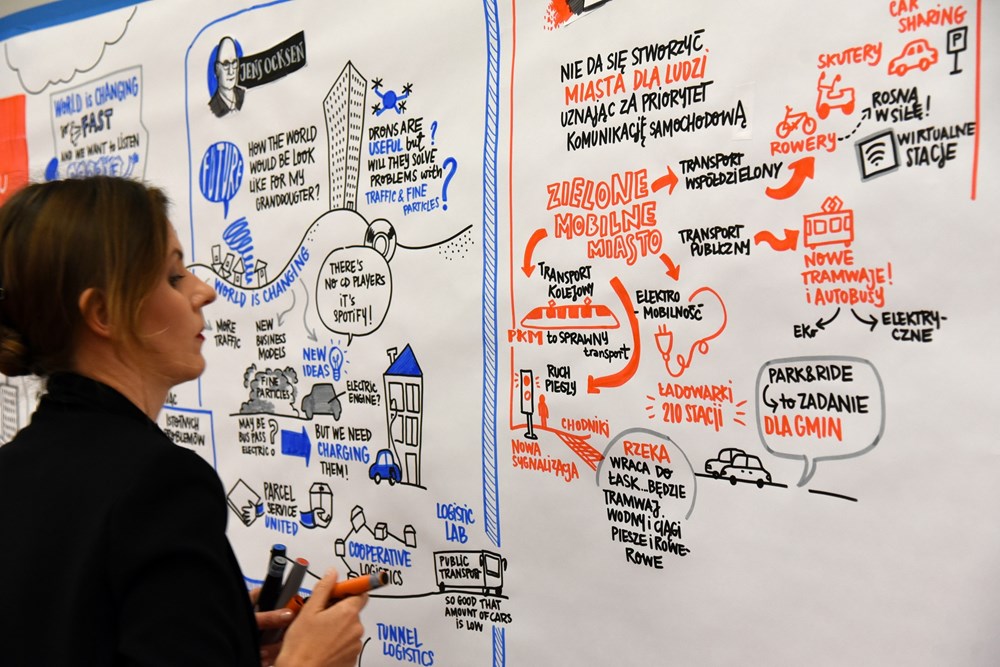 WORLD is CHANGING
FAST
AND WE WANT to LISTEN
JENS OCKSEN
FUTURE
HOW THE WORLD
WOULD BE LOOK
LIKE FOR MY
GRANDDOUGTER?
DRONS ARE
USEFUL but
WILL THEY SOLVE
PROBLEMS with
TRAFFIC & FINE
PARTICLES?
WORLD is CHANGING
THERE'S
NO CD PLAYERS
iT'S
SPOTiFY!
MORE
TRAFFIC
NEW
BUSINESS
MODELS
NEW
IDEAS
FiNE
PARTiCLES
ELECTRIC
ENGINE?
MAY BE
BUS PASS?
ELECTRIC
BUT WE NEED
CHARGING
THEM!
PARCEL
SERVICE
UNITED
COOPERATIVE
LOGISTICS
LOGISTIC
LAB
PUBLIC
TRANSPORT
SO GOOD THAT
AMOUNT OF CARS
iS LOW
TUNNEL
LOGISTICS
NIE DA SIĘ STWORZYĆ
MIASTA DLA LUDZI
UZNAJĄC ZA PRIORYTET
KOMUNIKACJĘ SAMOCHODOWĄ
CAR
SHARING
P
SKUTERY
ROWERY
ROSNĄ
W SIŁĘ!
WIRTUALNE
STACJE
TRANSPORT
WSPÓŁDZIELONY
ZIELONE
MOBILNE
MIASTO
TRANSPORT
PUBLICZNY
NOWE
TRAMWAJE!
i AUTOBUSY
EKO
ELEKTRY-
CZNE
TRANSPORT
KOLEJOWY
PKM to SPRAWNY
transport
ELEKTRO
-MOBILNOŚĆ
ŁADOWARKI
210 STACJI
RUCH
PIESZY
CHODNIKI
NOWA
SYGNALIZACJA
PARK&RIDE
to ZADANIE
DLA GMIN
RZEKA
WRACA DO
ŁASK...BĘDZIE
TRAMWAJ
WODNY i CIĄGI
PIESZE i ROWE-
ROWE